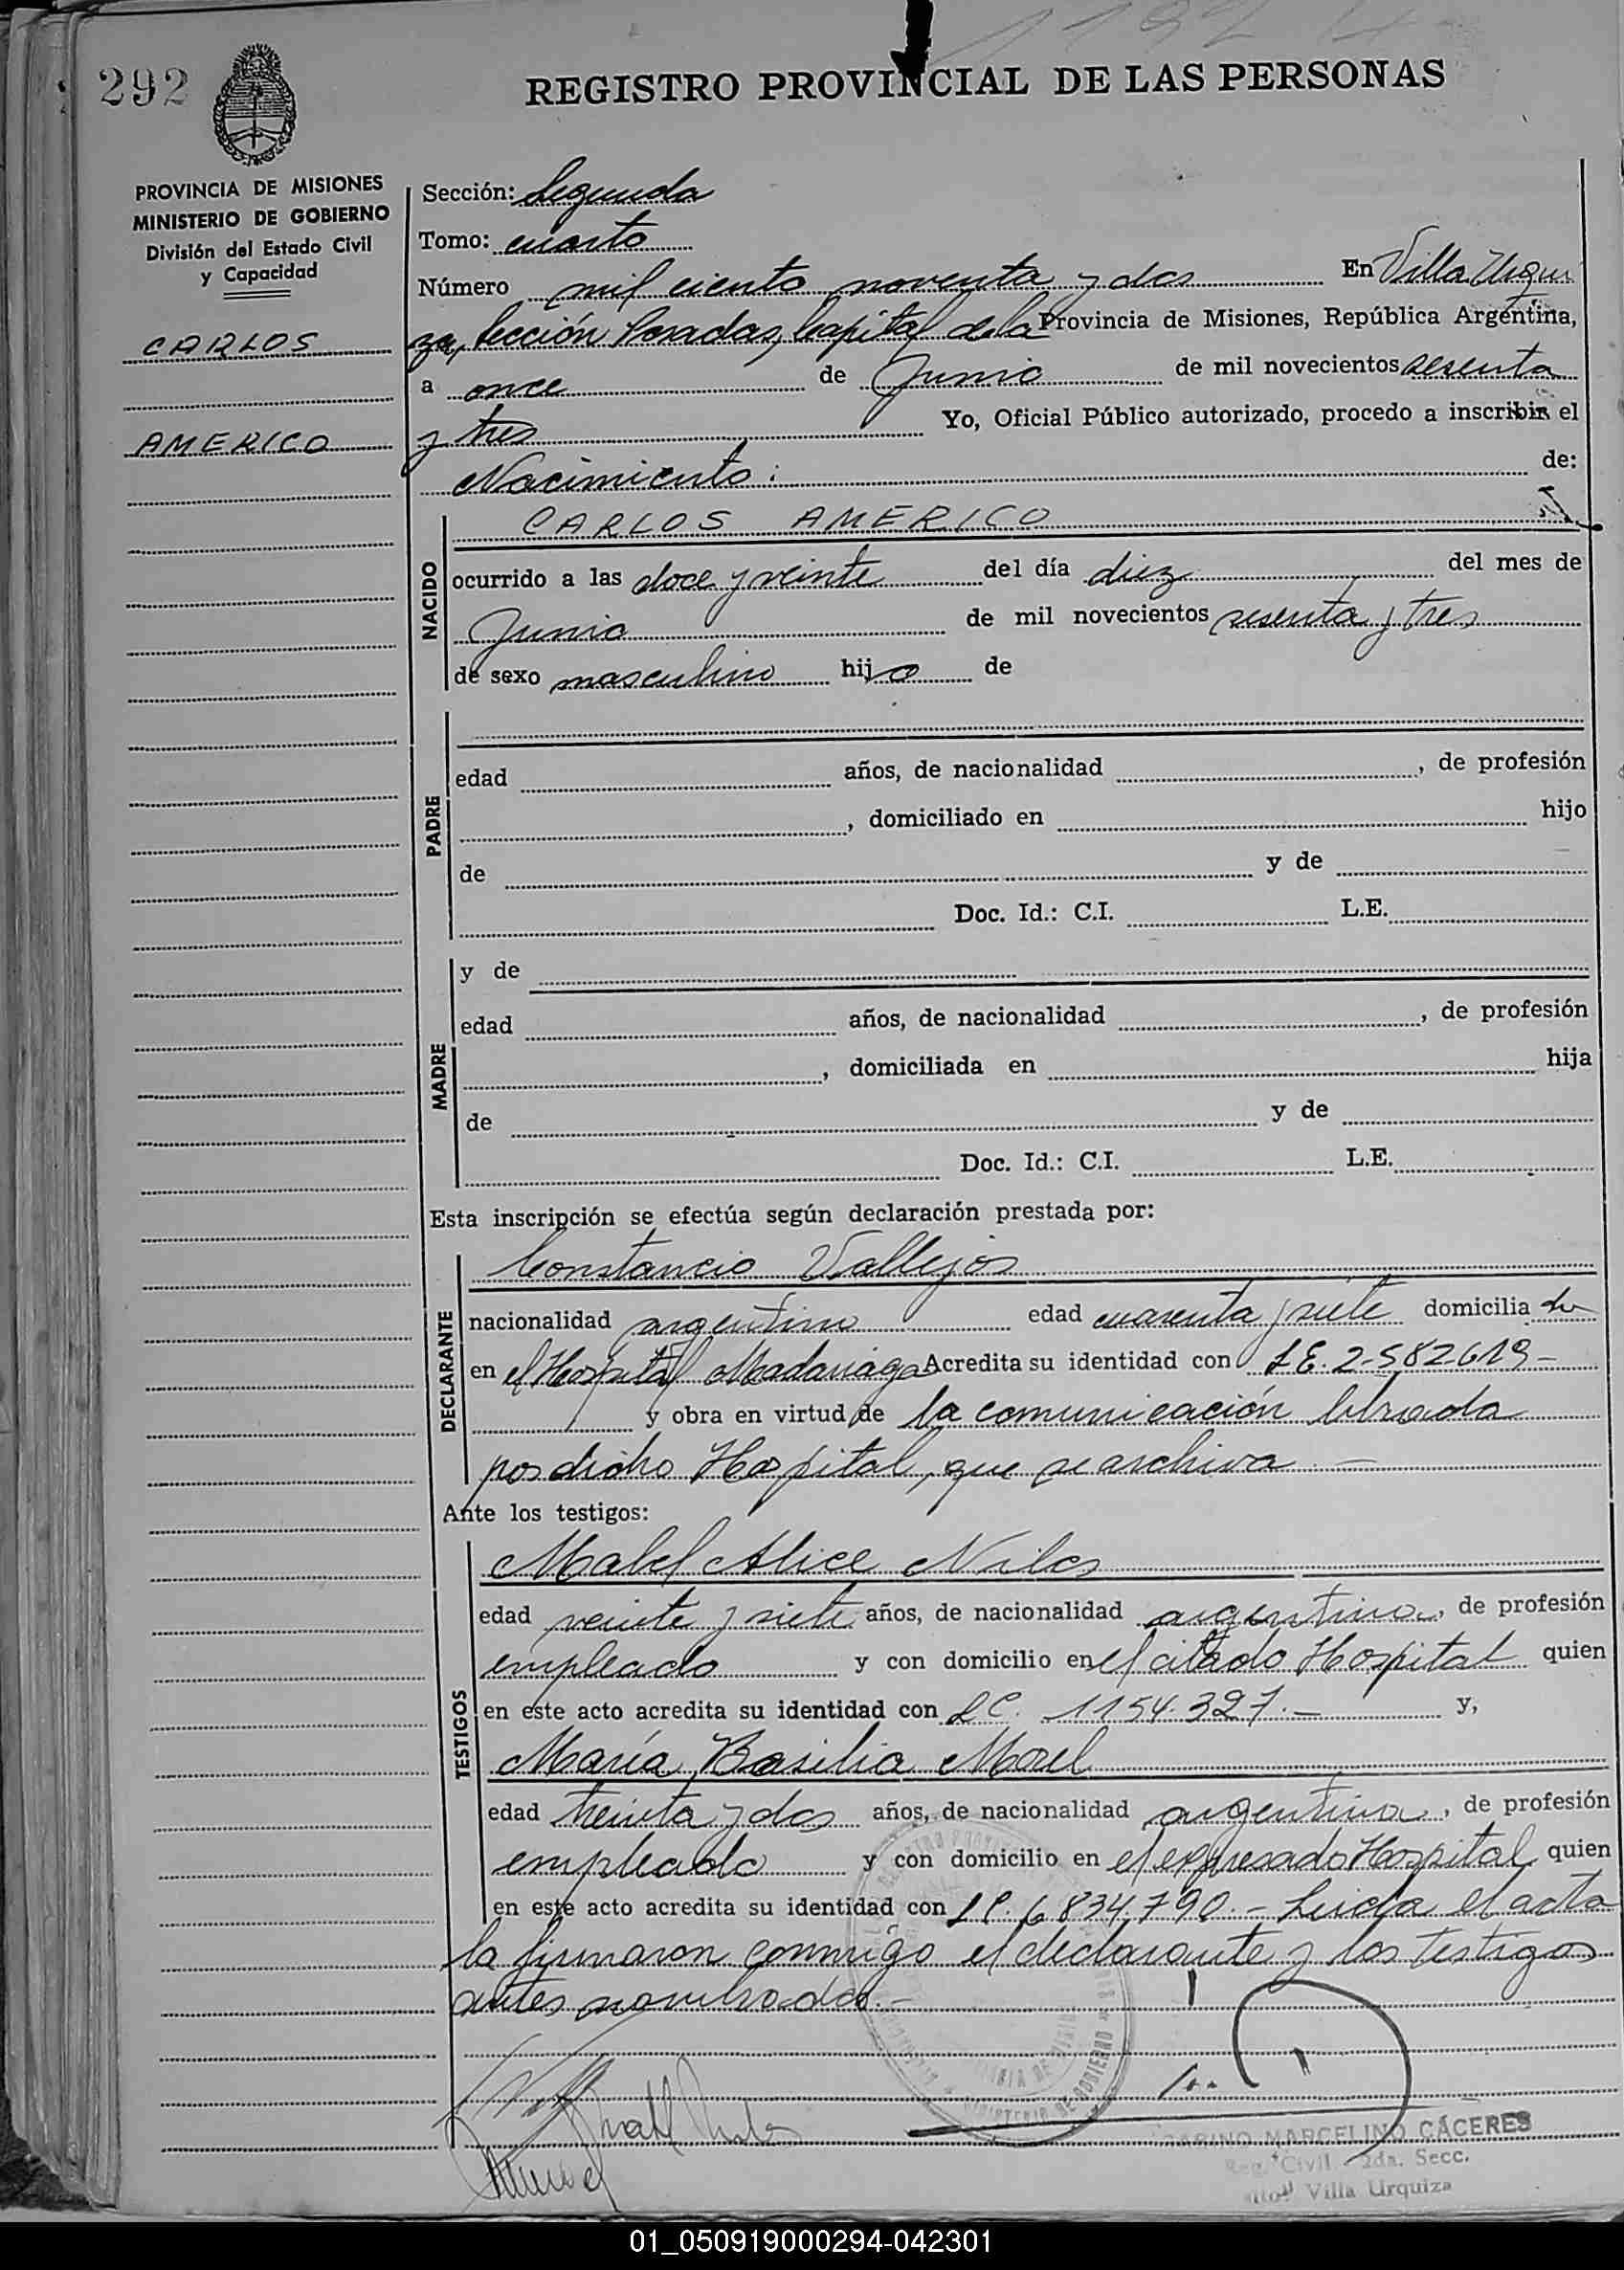 1192
292
REGISTRO PROVINCIAL DE LAS PERSONAS
PROVINCIA DE MISIONES
MINISTERIO DE GOBIERNO
División del Estado Civil
y Capacidad
CARLOS
AMERICO
Sección: Segunda
Tomo: cuarto
Número mil ciento noventa y dos En Villa Urqui
za, Sección Posadas, Capital de la Provincia de Misiones, República Argentina,
a once de Junio de mil novecientos sesenta
y tres Yo, Oficial Público autorizado, procedo a inscribir el
Nacimiento: de:
NACIDO
CARLOS AMERICO
ocurrido a las doce y veinte del día diez del mes de
Junio de mil novecientos sesenta y tres
de sexo masculino hijo de
PADRE
edad años, de nacionalidad , de profesión
, domiciliado en hijo
de y de
Doc. Id.: C.I. L.E.
MADRE
y de
edad años, de nacionalidad , de profesión
, domiciliada en hija
de y de
Doc. Id.: C.I. L.E.
Esta inscripción se efectúa según declaración prestada por:
DECLARANTE
Constancio Vallejos
nacionalidad argentino edad cuarenta y siete domicilia do
en el Hospital Madariaga Acredita su identidad con L.E. 2.582.619-
y obra en virtud de la comunicación librada
por dicho Hospital, que se archiva -
Ante los testigos:
TESTIGOS
Mabel Alice Niles
edad veinte y siete años, de nacionalidad argentina, de profesión
empleada y con domicilio en el citado Hospital quien
en este acto acredita su identidad con L.C. 1154.327.- y,
María Basilia Morel
edad treinta y dos años, de nacionalidad argentina, de profesión
empleada y con domicilio en el expresado Hospital quien
en este acto acredita su identidad con L.C. 6834.790.- Leida el acta
la firmaron conmigo el declarante y los testigos
antes nombrados.-
MINISTERIO DE GOBIERNO
SABINO MARCELINO CÁCERES
Reg. Civil 2da. Secc.
Villa Urquiza
01_050919000294-042301